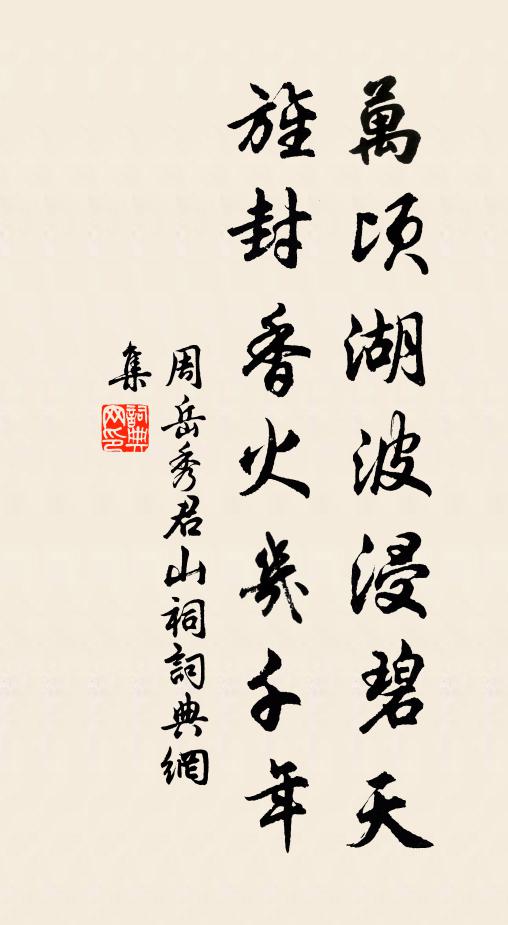 萬頃湖波浸碧天
旌封香火幾千年
周岳秀君山祠詞典網
集
詞典網印